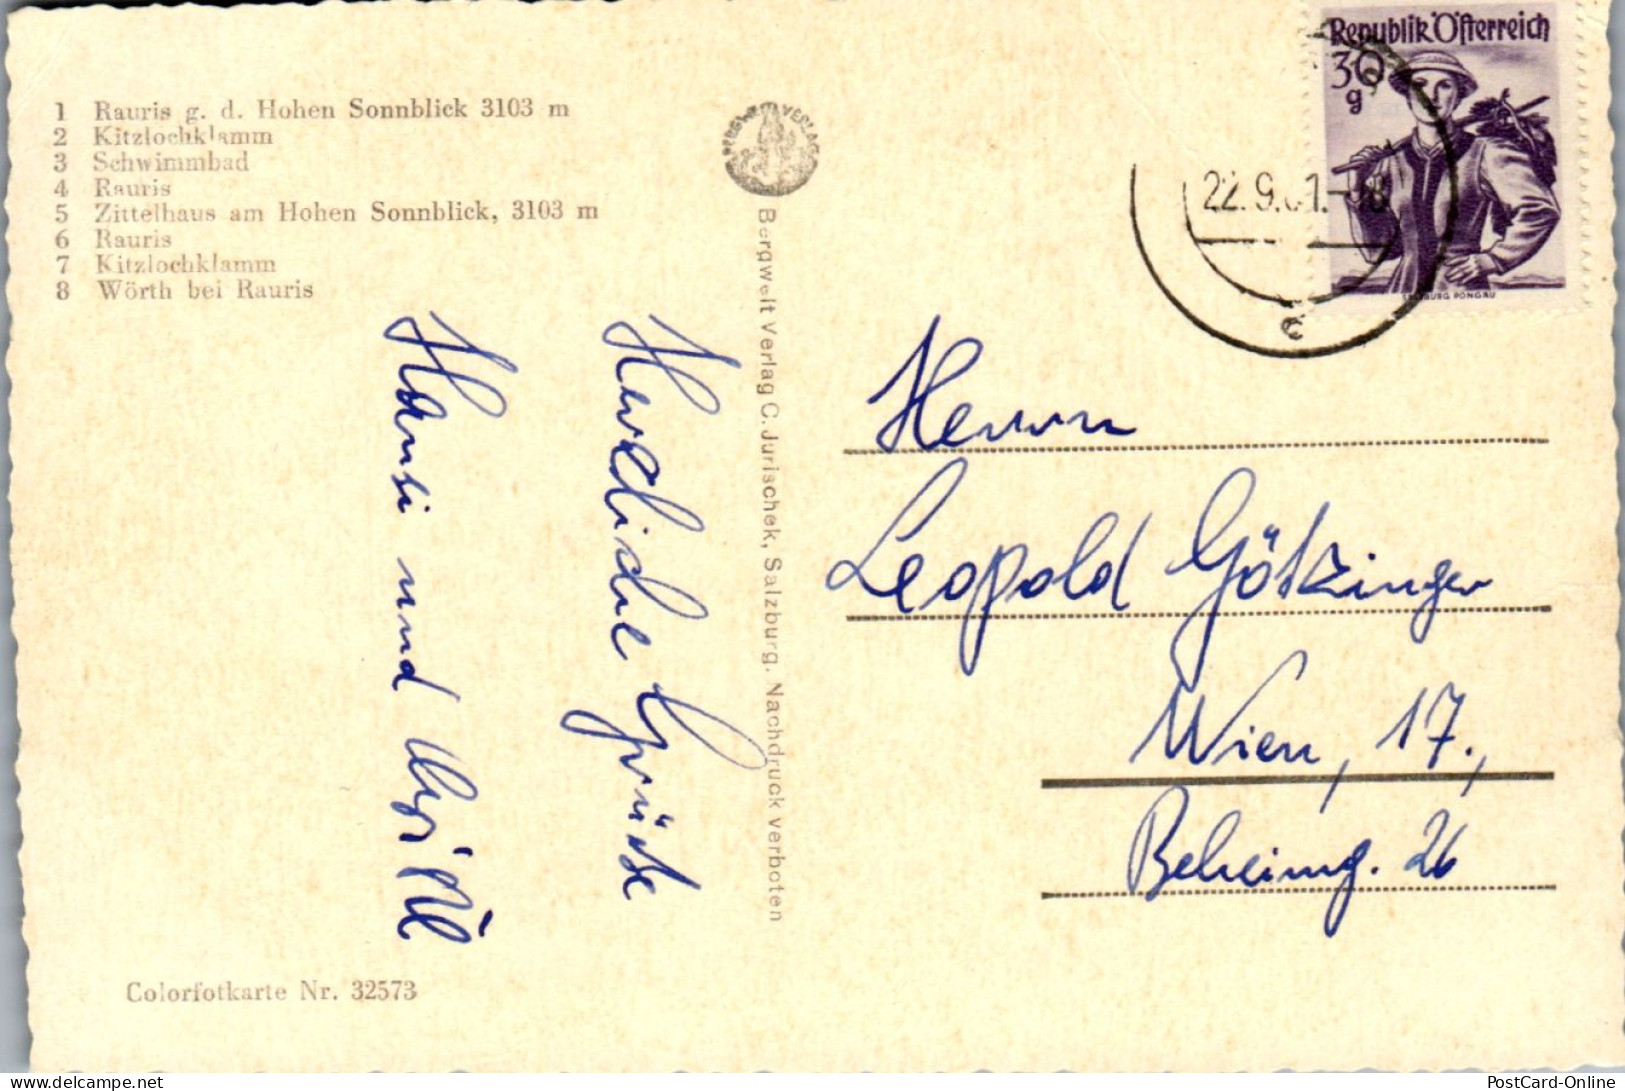 1 Rauris g. d. Hohen Sonnblick 3103 m
2 Kitzlochklamm
3 Schwimmbad
4 Rauris
5 Zittelhaus am Hohen Sonnblick, 3103 m
6 Rauris
7 Kitzlochklamm
8 Wörth bei Rauris
Herzliche Grüße
Hansi und
Colorfotkarte Nr. 32573
BERGWELT VERLAG
Bergwelt Verlag C. Jurischek, Salzburg. Nachdruck verboten
Republik Österreich
30
g
SALZBURG PONGAU
22.9.61.-08
c
Herrn
Leopold Götzinger
Wien, 17.,
Beheimg. 26
www.delcampe.net
PostCard-Online